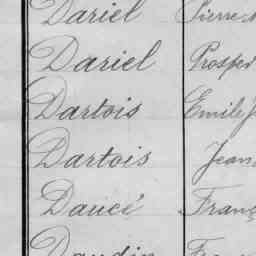 Dariel Pierre
Dariel Prosper
Dartois Emile J
Dartois Jean
Daucé Franç
Daudin Fran